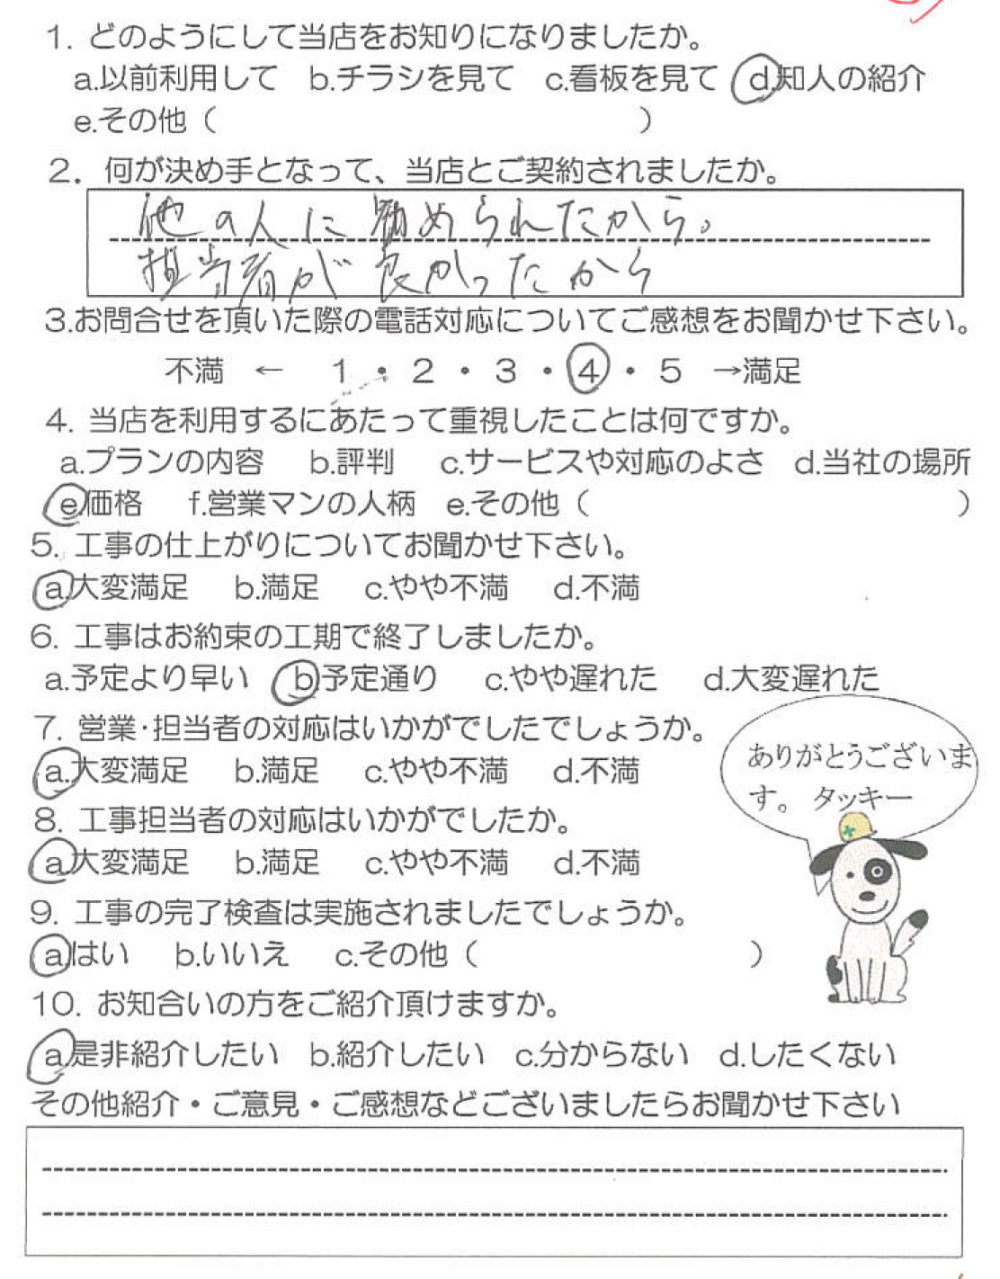 1. どのようにして当店をお知りになりましたか。
a.以前利用して b.チラシを見て c.看板を見て d.知人の紹介
e.その他（ ）
2. 何が決め手となって、当店とご契約されましたか。
他の人に勧められたから。
担当者が良かったから
3.お問合せを頂いた際の電話対応についてご感想をお聞かせ下さい。
不満 ← 1・2・3・4・5 →満足
4. 当店を利用するにあたって重視したことは何ですか。
a.プランの内容 b.評判 c.サービスや対応のよさ d.当社の場所
e.価格 f.営業マンの人柄 e.その他（ ）
5. 工事の仕上がりについてお聞かせ下さい。
a.大変満足 b.満足 c.やや不満 d.不満
6. 工事はお約束の工期で終了しましたか。
a.予定より早い b.予定通り c.やや遅れた d.大変遅れた
7. 営業・担当者の対応はいかがでしたでしょうか。
a.大変満足 b.満足 c.やや不満 d.不満
ありがとうございま
す。 タッキー
8. 工事担当者の対応はいかがでしたか。
a.大変満足 b.満足 c.やや不満 d.不満
9. 工事の完了検査は実施されましたでしょうか。
a.はい b.いいえ c.その他（ ）
10. お知合いの方をご紹介頂けますか。
a.是非紹介したい b.紹介したい c.分からない d.したくない
その他紹介・ご意見・ご感想などございましたらお聞かせ下さい